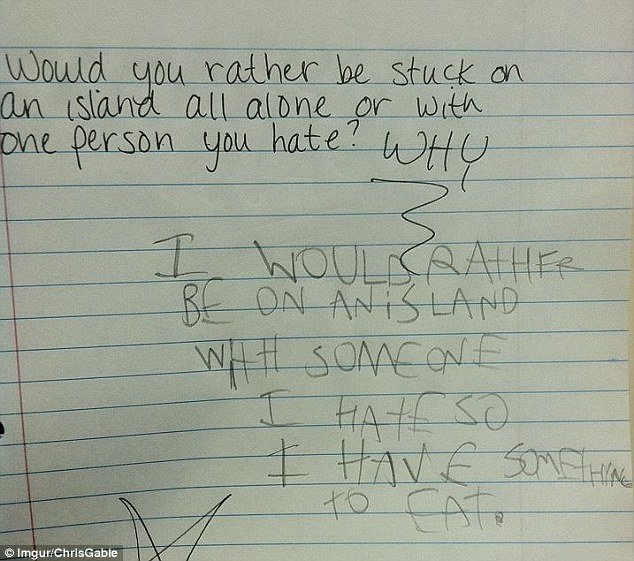 Would you rather be stuck on
an island all alone or with
one person you hate? WHY
I WOULD RATHER
BE ON AN iSLAND
WITH SOMEONE
I HATE SO
I HAVE SOMETHING
TO EAT.
© Imgur/ChrisGable